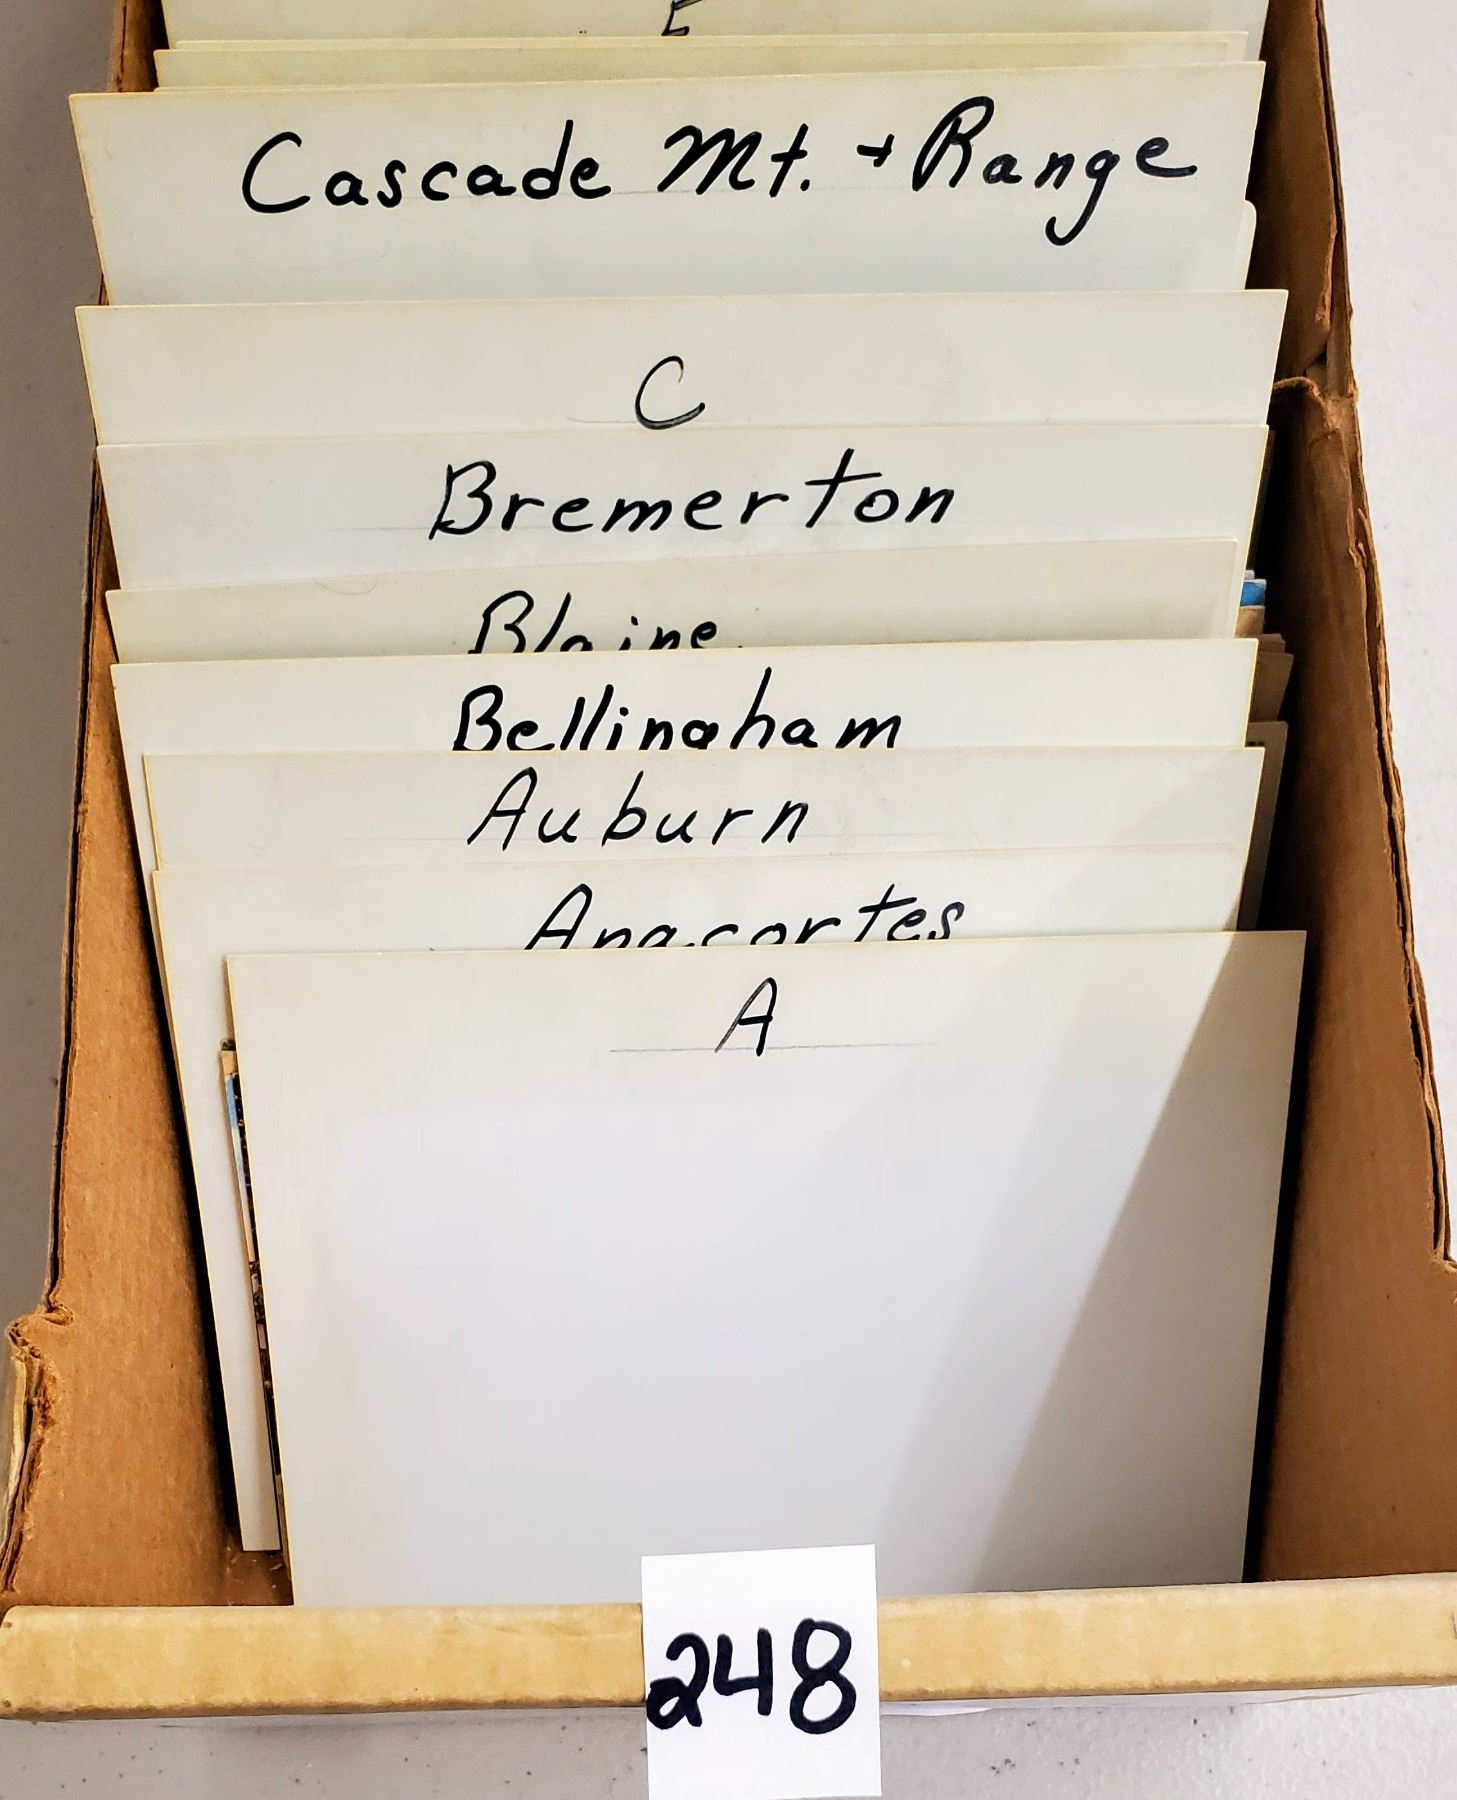 Cascade Mt. + Range
C
Bremerton
Blaine
Bellingham
Auburn
Anacortes
A
248